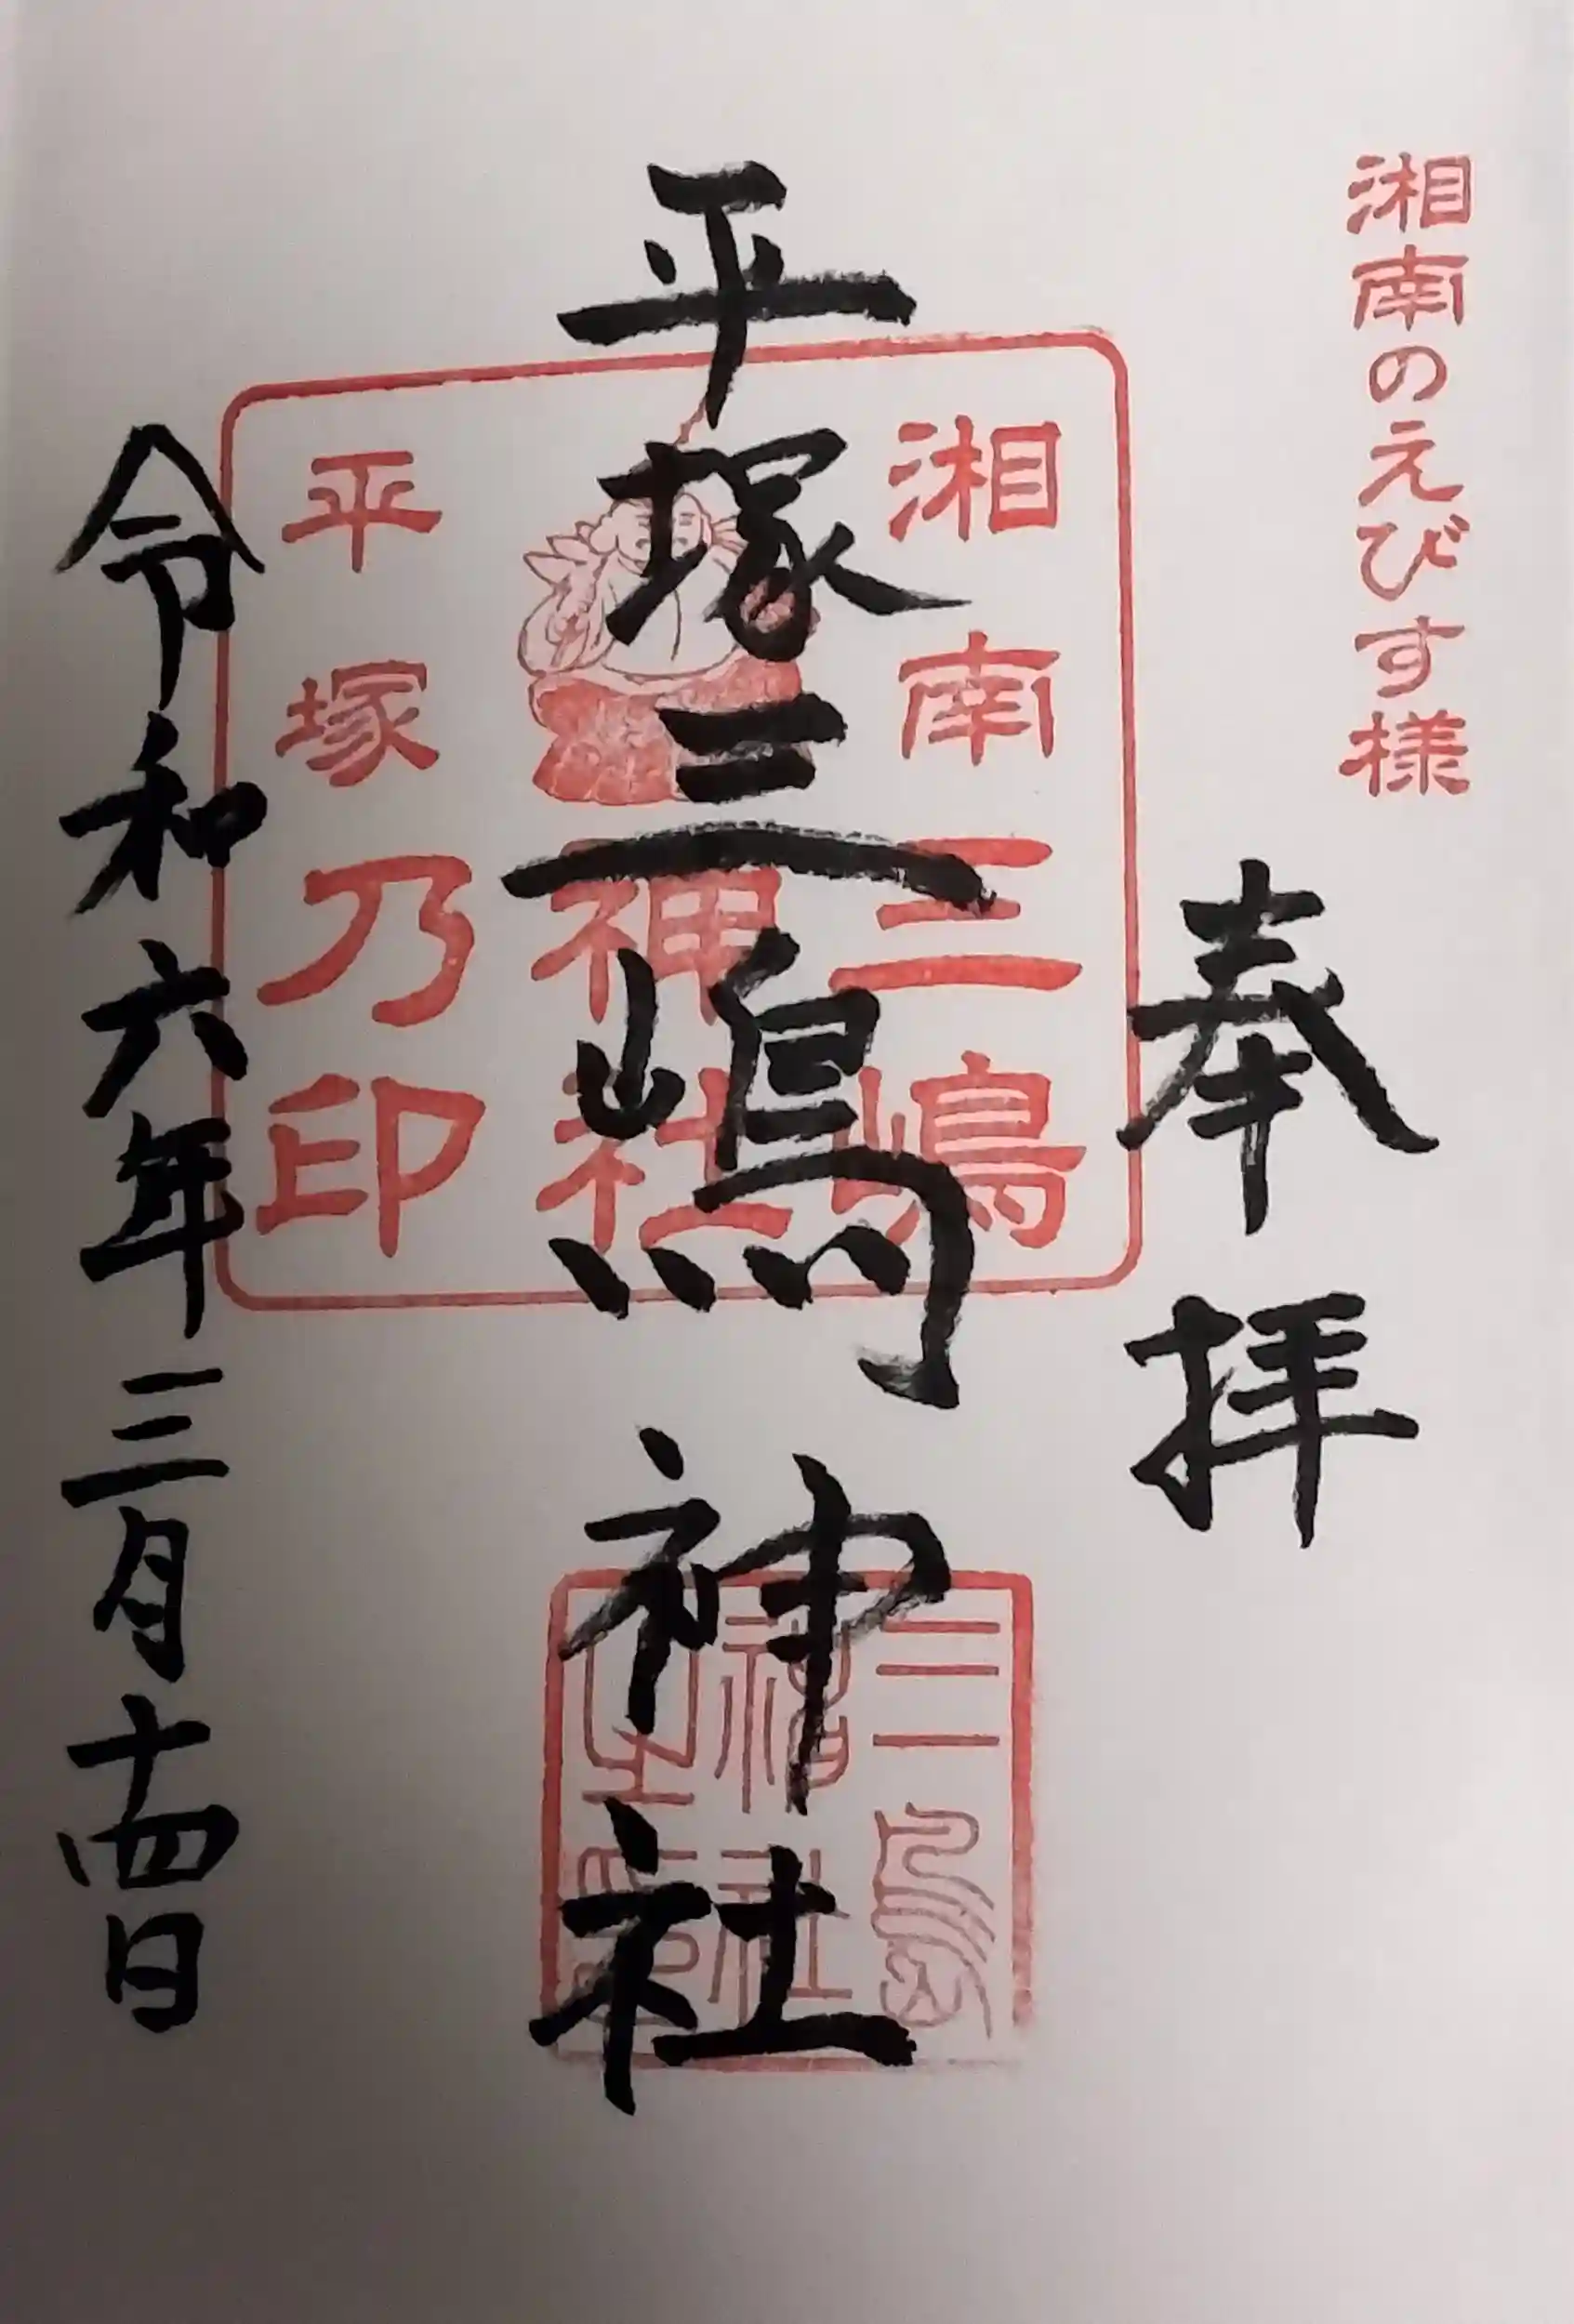 湘南のえびす様
奉拝
平塚三嶋神社
湘南三嶋
神社
平塚乃印
三島
神社
之印
令和六年三月十四日